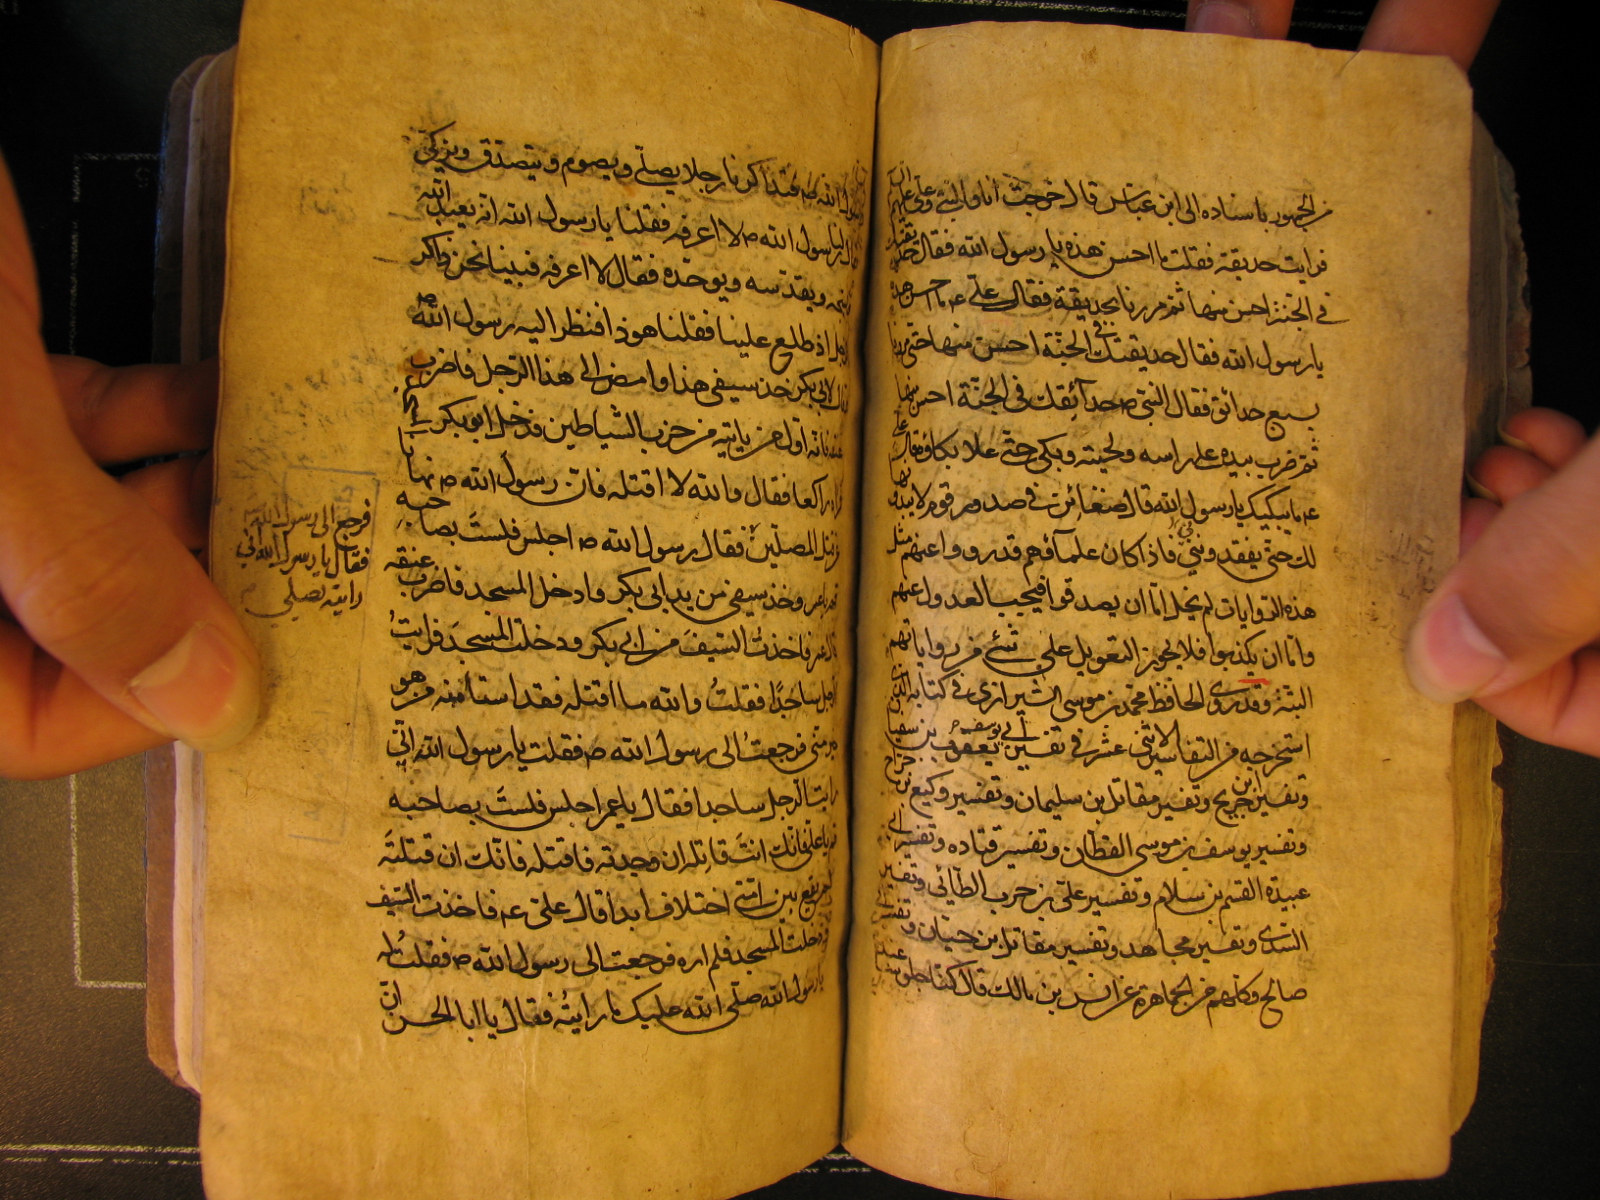 من الجمهور باسناده الى ابن عباس قال خرجت انا والنبي وعلى عليهم السلم
فرايت حديقة فقلت ما احسن هذه يا رسول الله فقال حديقتك
في الجنة احسن منها ثم مررنا بحديقة فقال علي عم ما احسن هذه
يا رسول الله فقال حديقتك في الجنة احسن منها حتى مررنا
بسبع حدائق فقال النبي ص حدآئقك في الجنة احسن منها
ثم ضرب بيده على راسه ولحيته وبكى حتى علا بكاؤه فقال على
عم ما يبكيك يا رسول الله قال ضغائن في صدور قوم لا يبدونها
لك حتى يفقدوني فاذا كان علمآؤهم قد رووا عنهم مثل
هذه الروايات لم يخل امّا ان يصدقوا فيجب العدول عنهم
وامّا ان يكذبوا فلا يجوز التعويل على شئ من رواياتهم
البتة وقد روى الحافظ محمد بن موسى الشيرازى في كتابه الذى
استخرجه من التفاسير الاثنى عشر في تفسير أبي يوسف يعقوب بن سفيان
وتفسير ابن جريح وتفسير مقاتل بن سليمان وتفسير وكيع بن جراح
وتفسير يوسف بن موسى القطان وتفسير قتاده وتفسير أبي
عبيدة القسم بن سلام وتفسير على بن حرب الطائى وتفسير
السدى وتفسير مجاهد وتفسير مقاتل بن حيان وتفسير أبي
صالح وكلهم من الجماهرة عن انس بن مالك قال كنا جلوسا عند
رسول الله ص فتذاكرنا رجلا يصلّى ويصوم ويتصدق ويزكّى
فقال لنا رسول الله ص لا اعرفه فقلنا يا رسول الله انه يعبد الله
ويسبحه ويقدسه ويوحّده فقال لا اعرفه فبينا نحن في ذكر
الرجل اذ طلع علينا فقلنا هو ذا فنظر اليه رسول الله ص
فقال لابي بكر خذ سيفى هذا وامض الى هذا الرجل فاضرب
عنقه فانه اول من ياتيه من حزب الشياطين فدخل ابو بكر المسجد
فراه راكعا فقال والله لا اقتله فان رسول الله ص نهانا
عن قتل المصلّين فقال رسول الله ص اجلس فلستَ بصاحبه
قم يا عمر وخذ سيفى من يد ابى بكر وادخل المسجد فاضرب عنقه
قال عمر فاخذتُ السيفَ من ابي بكر ودخلت المسجدَ فرايتُ
الرجل ساجدًا فقلتُ والله ما اقتله فقد استأمنه من هو
خير منّى فرجعتُ الى رسول الله ص فقلت يا رسول الله انّى
رايت الرجل ساجدا فقال يا عمر اجلس فلستَ بصاحبه
قم يا على فانّك انتَ قاتِله ان وجدته فاقتله فانّك ان قتلتَه
لم يقع بين امّتي اختلاف ابدا قال علىّ عم فاخذت السيف
ودخلت المسجد فلم اره فرجعت الى رسول الله ص فقلت له
يا رسول الله صلّى الله عليك ما رايتُه فقال يا ابا الحسن انّ
فرجع الى رسول الله
فقال يا رسول الله اني
رايته يصلى